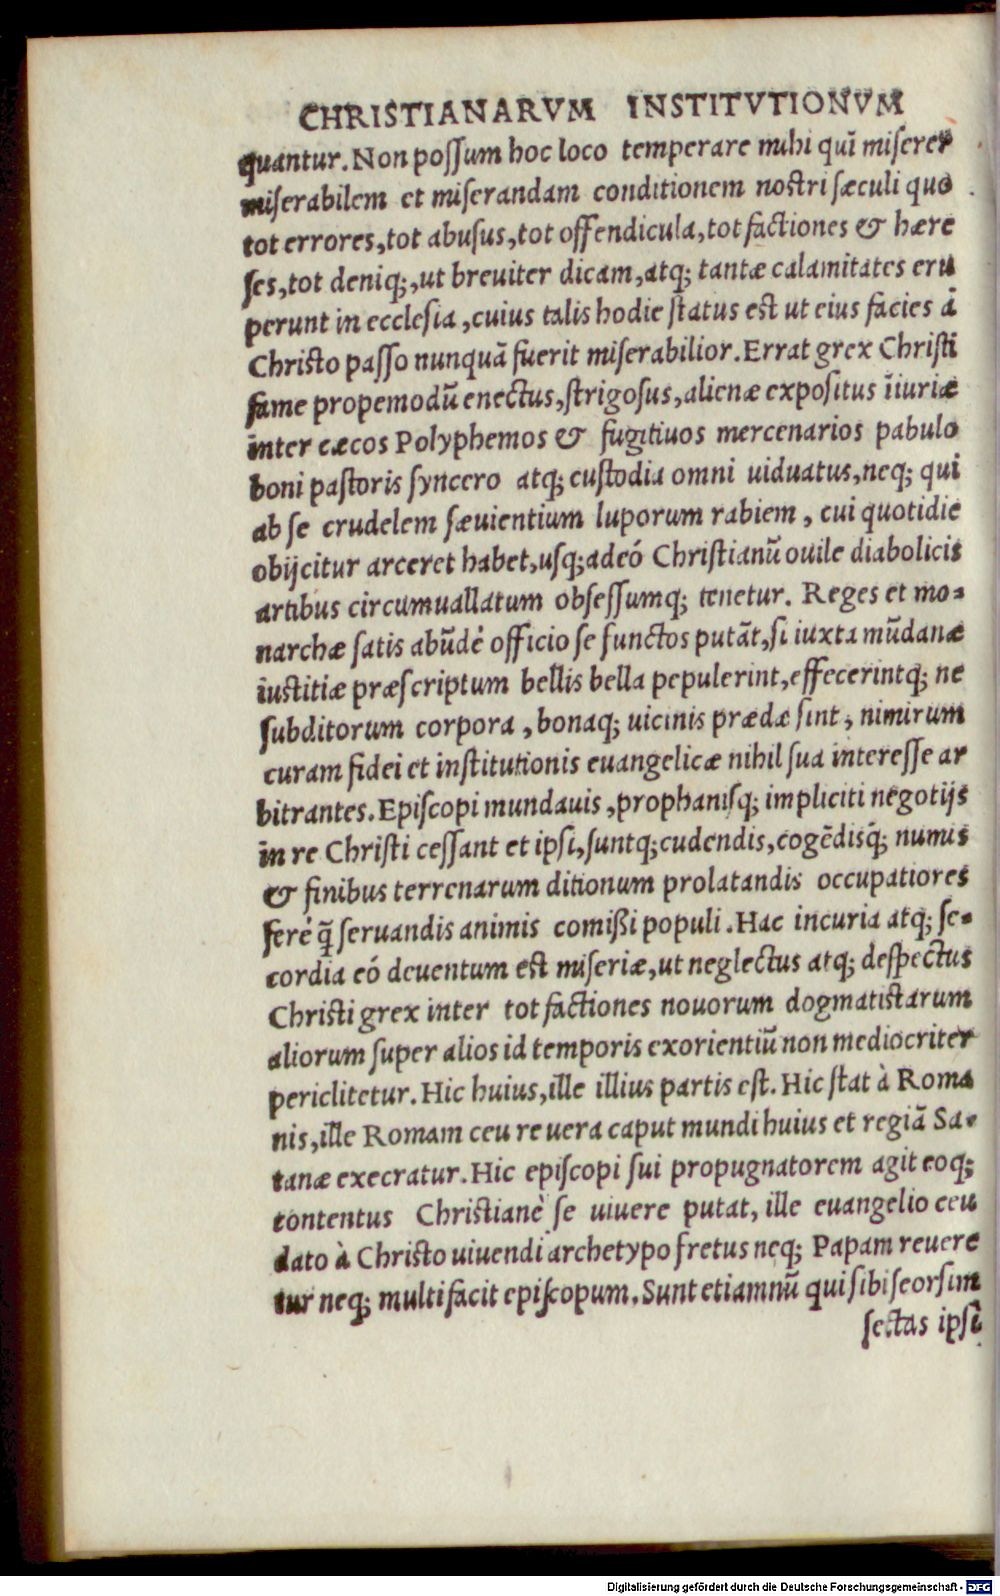 CHRISTIANARVM INSTITVTIONVM
quantur. Non possum hoc loco temperare mihi quĩ miserer
miserabilem et miserandam conditionem nostri sæculi quo
tot errores, tot abusus, tot offendicula, tot factiones & hære
ses, tot deniq;, ut breuiter dicam, atq; tantæ calamitates eru
perunt in ecclesia, cuius talis hodie status est ut eius facies à
Christo passo nunquã fuerit miserabilior. Errat grex Christi
fame propemodũ enectus, strigosus, alienæ expositus ĩiuriæ
inter cæcos Polyphemos & fugitiuos mercenarios pabulo
boni pastoris syncero atq; custodia omni uiduatus, neq; qui
ab se crudelem sæuientium luporum rabiem, cui quotidie
obijcitur arceret habet, usq; adeó Christianũ ouile diabolicis
artibus circumuallatum obsessumq; tenetur. Reges et mo-
narchæ satis abũdè officio se functos putãt, si iuxta mũdanæ
iustitiæ præscriptum bellis bella pepulerint, effecerintq; ne
subditorum corpora, bonaq; uicinis prædæ sint, nimirum
curam fidei et institutionis euangelicæ nihil sua interesse ar
bitrantes. Episcopi mundauis, prophanisq; impliciti negotijs
in re Christi cessant et ipsi, suntq; cudendis, cogẽdisq́; numis
& finibus terrenarum ditionum prolatandis occupatiores
ferè q̃ seruandis animis comißi populi. Hac incuria atq; se-
cordia eó deuentum est miseriæ, ut neglectus atq; despectus
Christi grex inter tot factiones nouorum dogmatistarum
aliorum super alios id temporis exorientiũ non mediocriter
periclitetur. Hic huius, ille illius partis est. Hic stat à Roma
nis, ille Romam ceu re uera caput mundi huius et regiã Sa-
tanæ execratur. Hic episcopi sui propugnatorem agit eoq;
contentus Christianè se uiuere putat, ille euangelio ceu
dato à Christo uiuendi archetypo fretus neq; Papam reuere
tur neq; multi facit episcopum. Sunt etiamnũ qui sibi seorsim
sectas ipsi
Digitalisierung gefördert durch die Deutsche Forschungsgemeinschaft - DFG